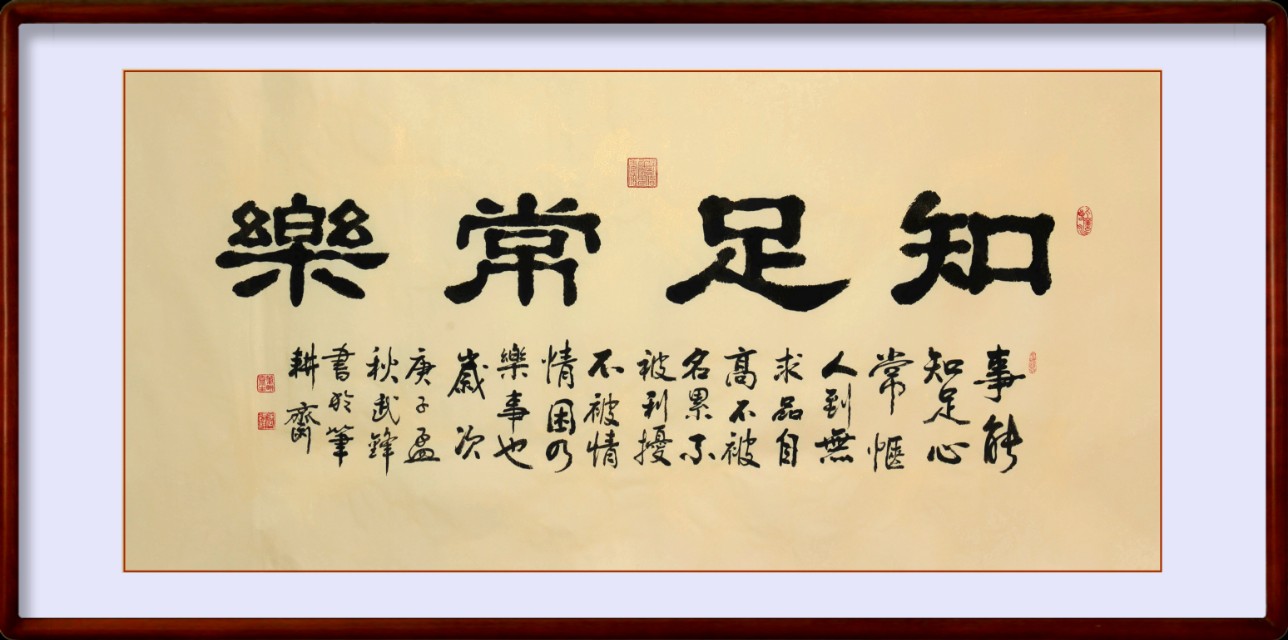 知足常樂
事能
知足心
常惬
人到無
求品自
高不被
名累不
被利擾
不被情
情困乃
樂事也
歲次
庚子孟
秋武鋒
書於筆
耕齋